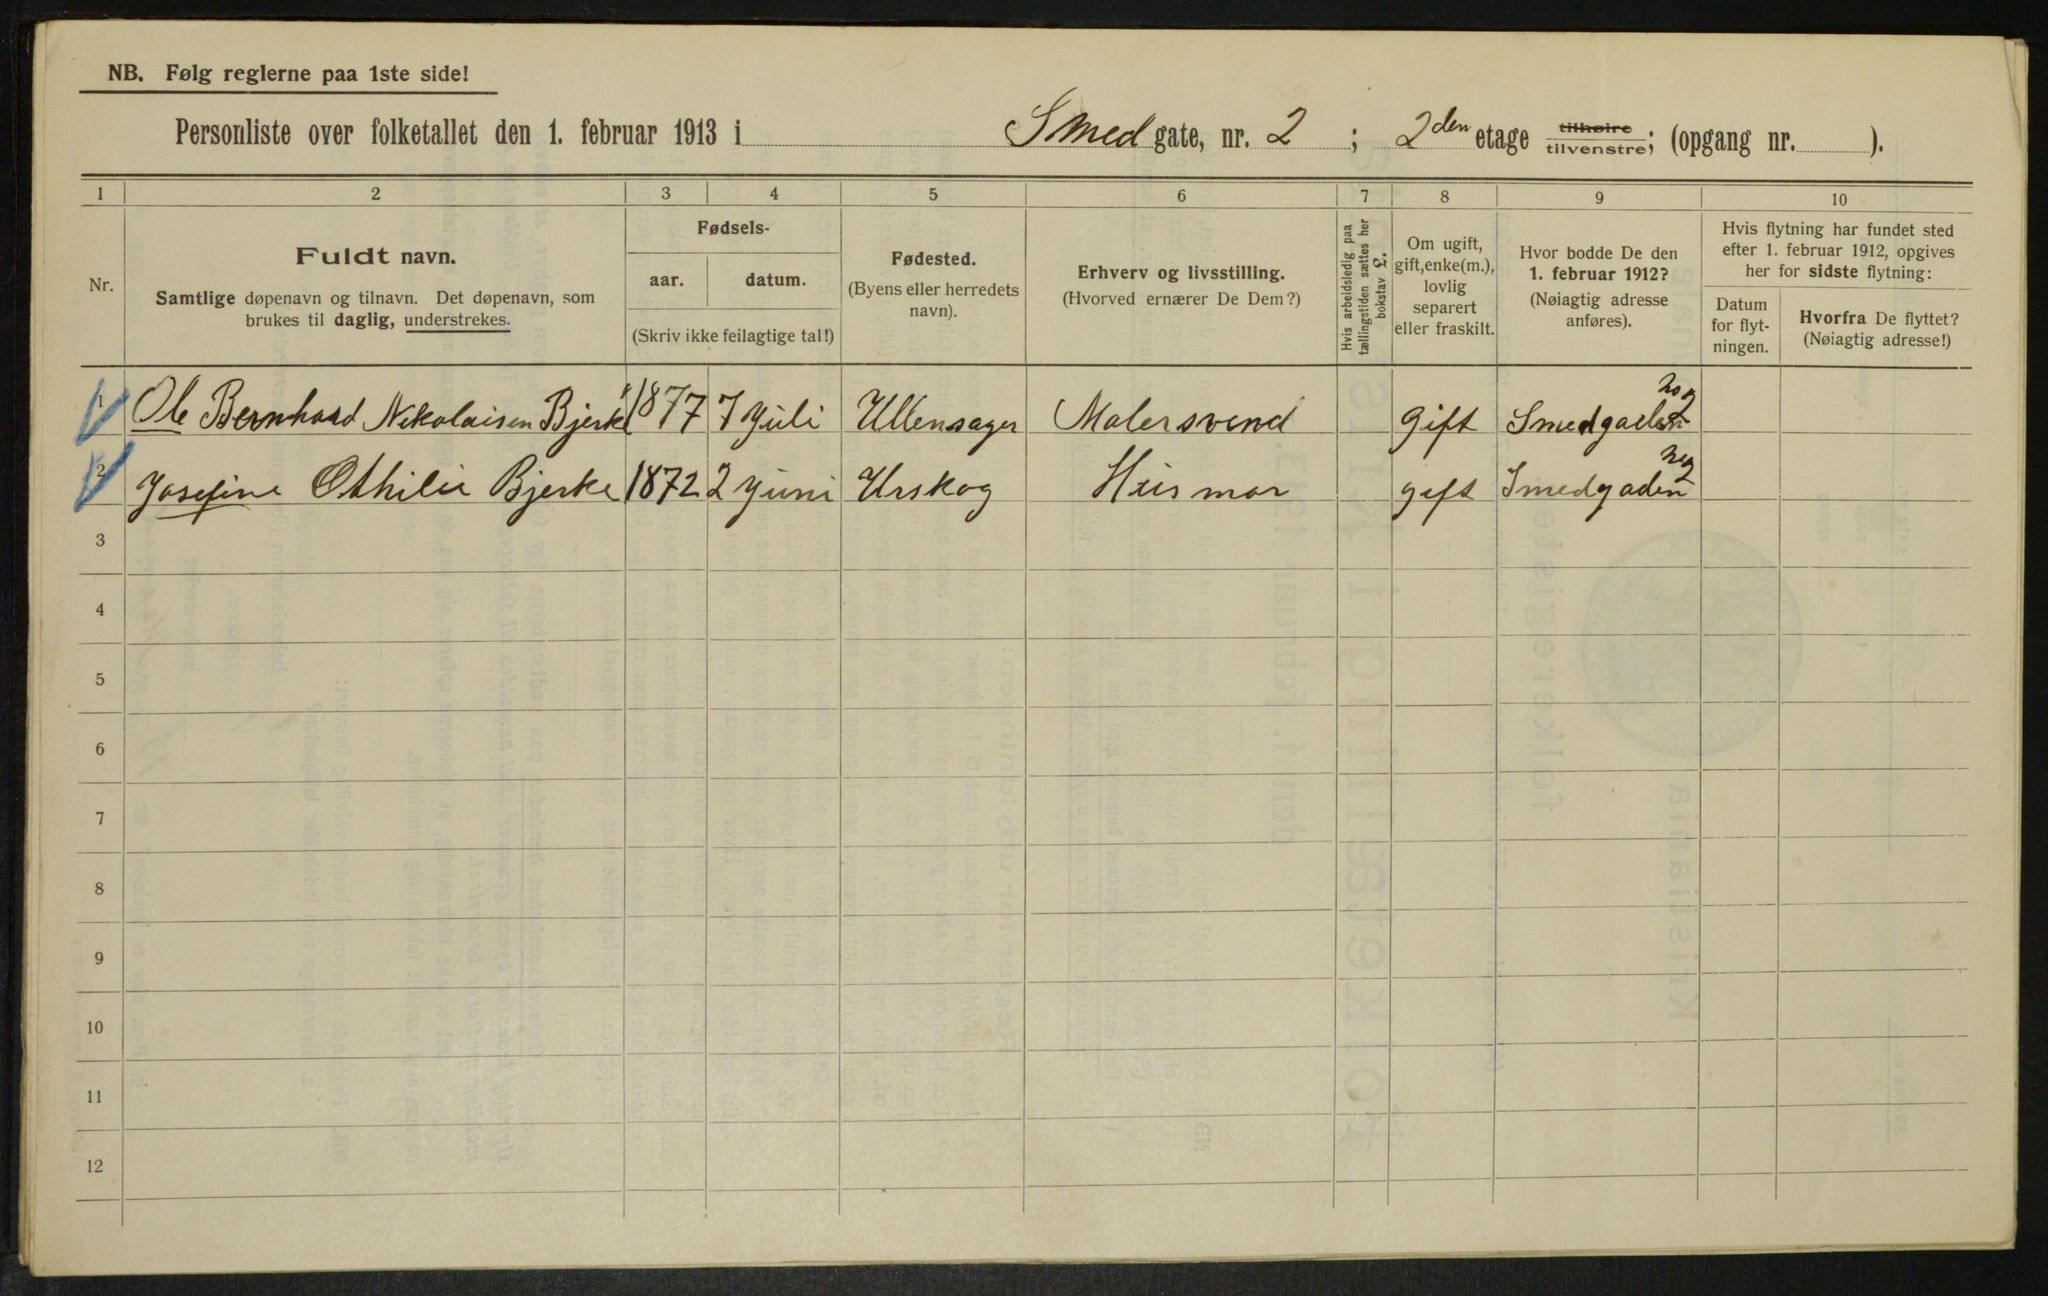 NB. Følg reglerne paa 1ste side!
Personliste over folketallet den 1. februar 1913 i Smed gate, nr. 2 ; 2den etage tilhøire tilvenstre; (opgang nr. ).
1 2 3 4 5 6 7 8 9 10
Nr.
Fuldt navn.
Samtlige døpenavn og tilnavn. Det døpenavn, som
brukes til daglig, understrekes.
Fødsels-
aar. datum.
(Skriv ikke feilagtige tal!)
Fødested.
(Byens eller herredets
navn).
Erhverv og livsstilling.
(Hvorved ernærer De Dem?)
Hvis arbeidsledig paa
tællingstiden sættes her
bokstav L.
Om ugift,
gift, enke(m.),
lovlig
separert
eller fraskilt.
Hvor bodde De den
1. februar 1912?
(Nøiagtig adresse
anføres).
Hvis flytning har fundet sted
efter 1. februar 1912, opgives
her for sidste flytning:
Datum
for flyt-
ningen.
Hvorfra De flyttet?
(Nøiagtig adresse!)
1 Ole Bernhard Nikolaisen Bjerke 1877 7 Juli Ullensager Malersvend gift Smedgaden no 2
2 Josefine Othilie Bjerke 1872 2 Juni Urskog Husmor gift Smedgaden no 2
3
4
5
6
7
8
9
10
11
12